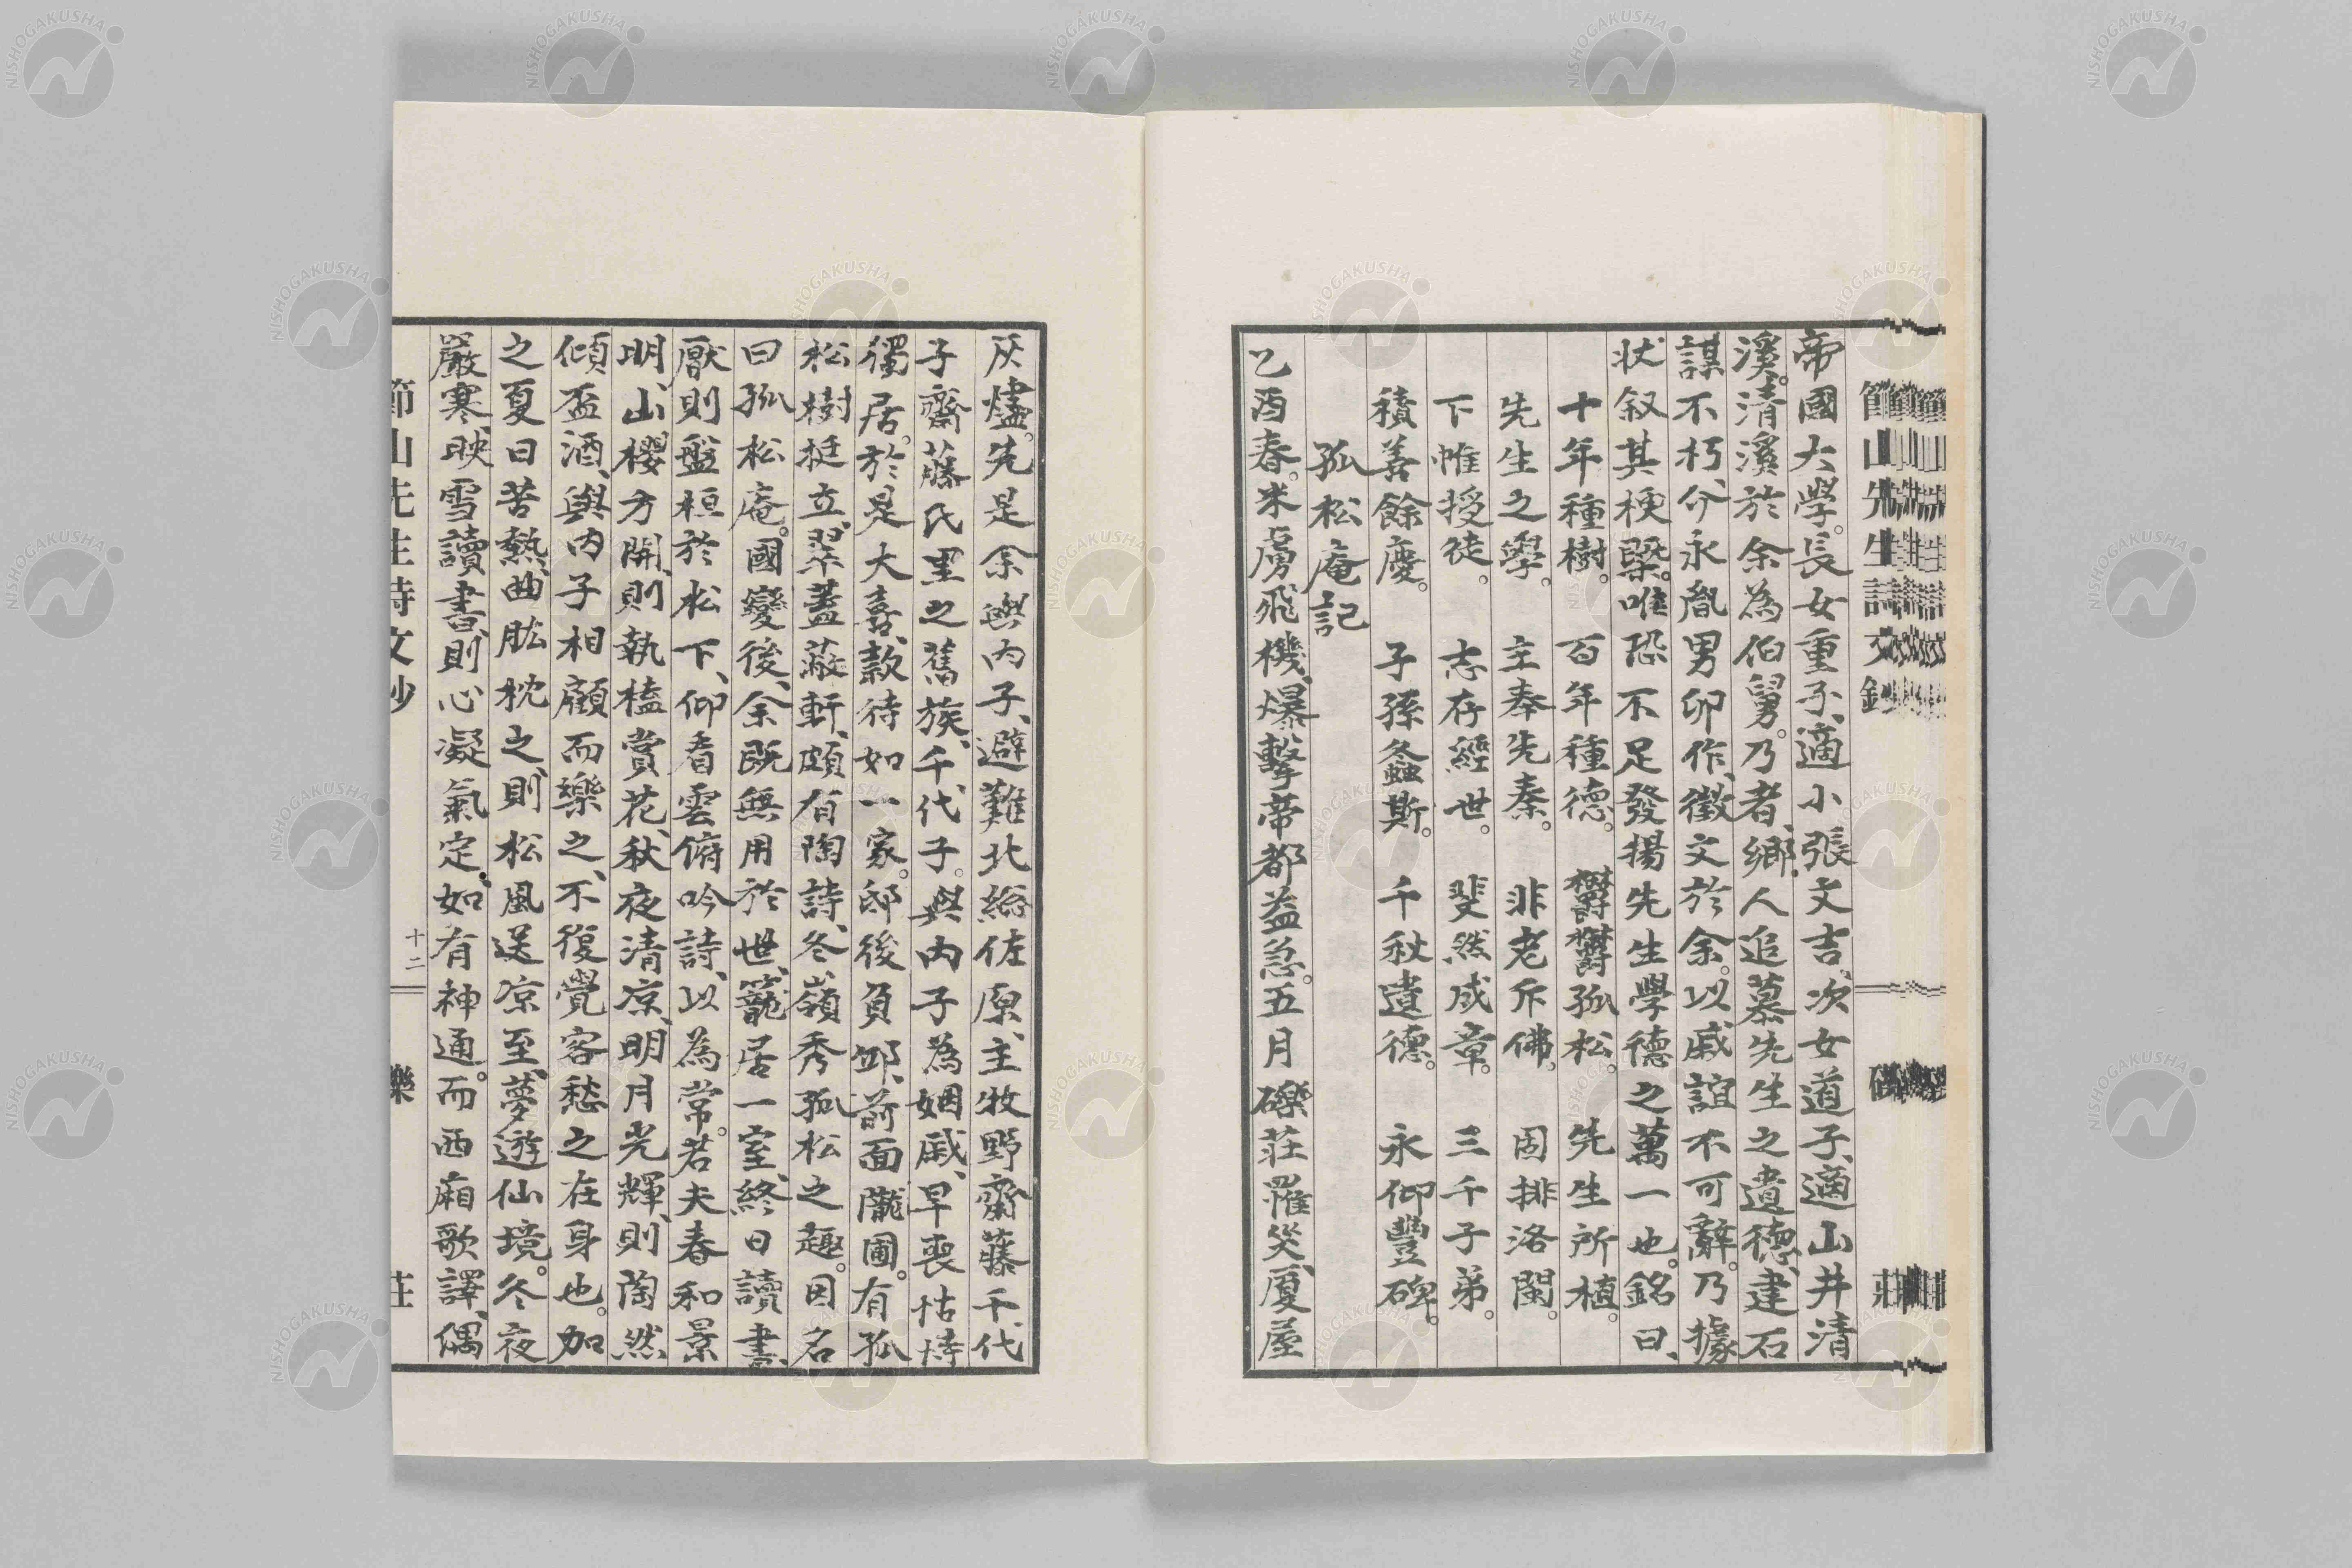 帝國大學。長女重子、適小張文吉、次女道子、適山井清
溪。清溪於余為伯舅。乃者、鄉人追慕先生之遺德、建石
謀不朽、介永胤男卯作、徵文於余。以戚誼不可辭。乃據
状叙其梗槩。唯恐不足發揚先生學德之萬一也。銘曰、
十年種樹。 百年種德。 欝欝孤松。 先生所植。
先生之學。 主奉先秦。 非老斥佛。 固排洛閩。
下帷授徒。 志存經世。 斐然成章。 三千子弟。
積善餘慶。 子孫螽斯。 千秋遺德。 永仰豐碑。
孤松庵記
乙酉春。米虜飛機、爆擊帝都益急。五月礫莊罹災、廈屋
灰燼。先是余與内子、避難北総佐原、主牧野齋藤千代
子。齋藤氏里之舊族、千代子。與内子為姻戚、早喪怙恃
獨居。於是大喜、款待如一家。邸後負邱、前面隴圃。有孤
松樹挺立、翠蓋蔽軒、頗有陶詩、冬嶺秀孤松之趣。因名
曰孤松庵。國變後、余既無用於世、寵居一室、終日讀書、
厭則盤桓於松下、仰看雲俯吟詩、以為常。若夫春和景
明、山櫻方開、則執榼賞花、秋夜清凉、明月光輝、則陶然
傾盃酒、與内子相顧而樂之、不復覺客愁之在身也。加
之夏日苦熱、曲肱枕之、則松風送凉至、夢遊仙境。冬夜
嚴寒、映雪讀書、則心凝氣定、如有神通。而西廂歌譯、偶
節山先生詩文鈔
十二
樂
莊